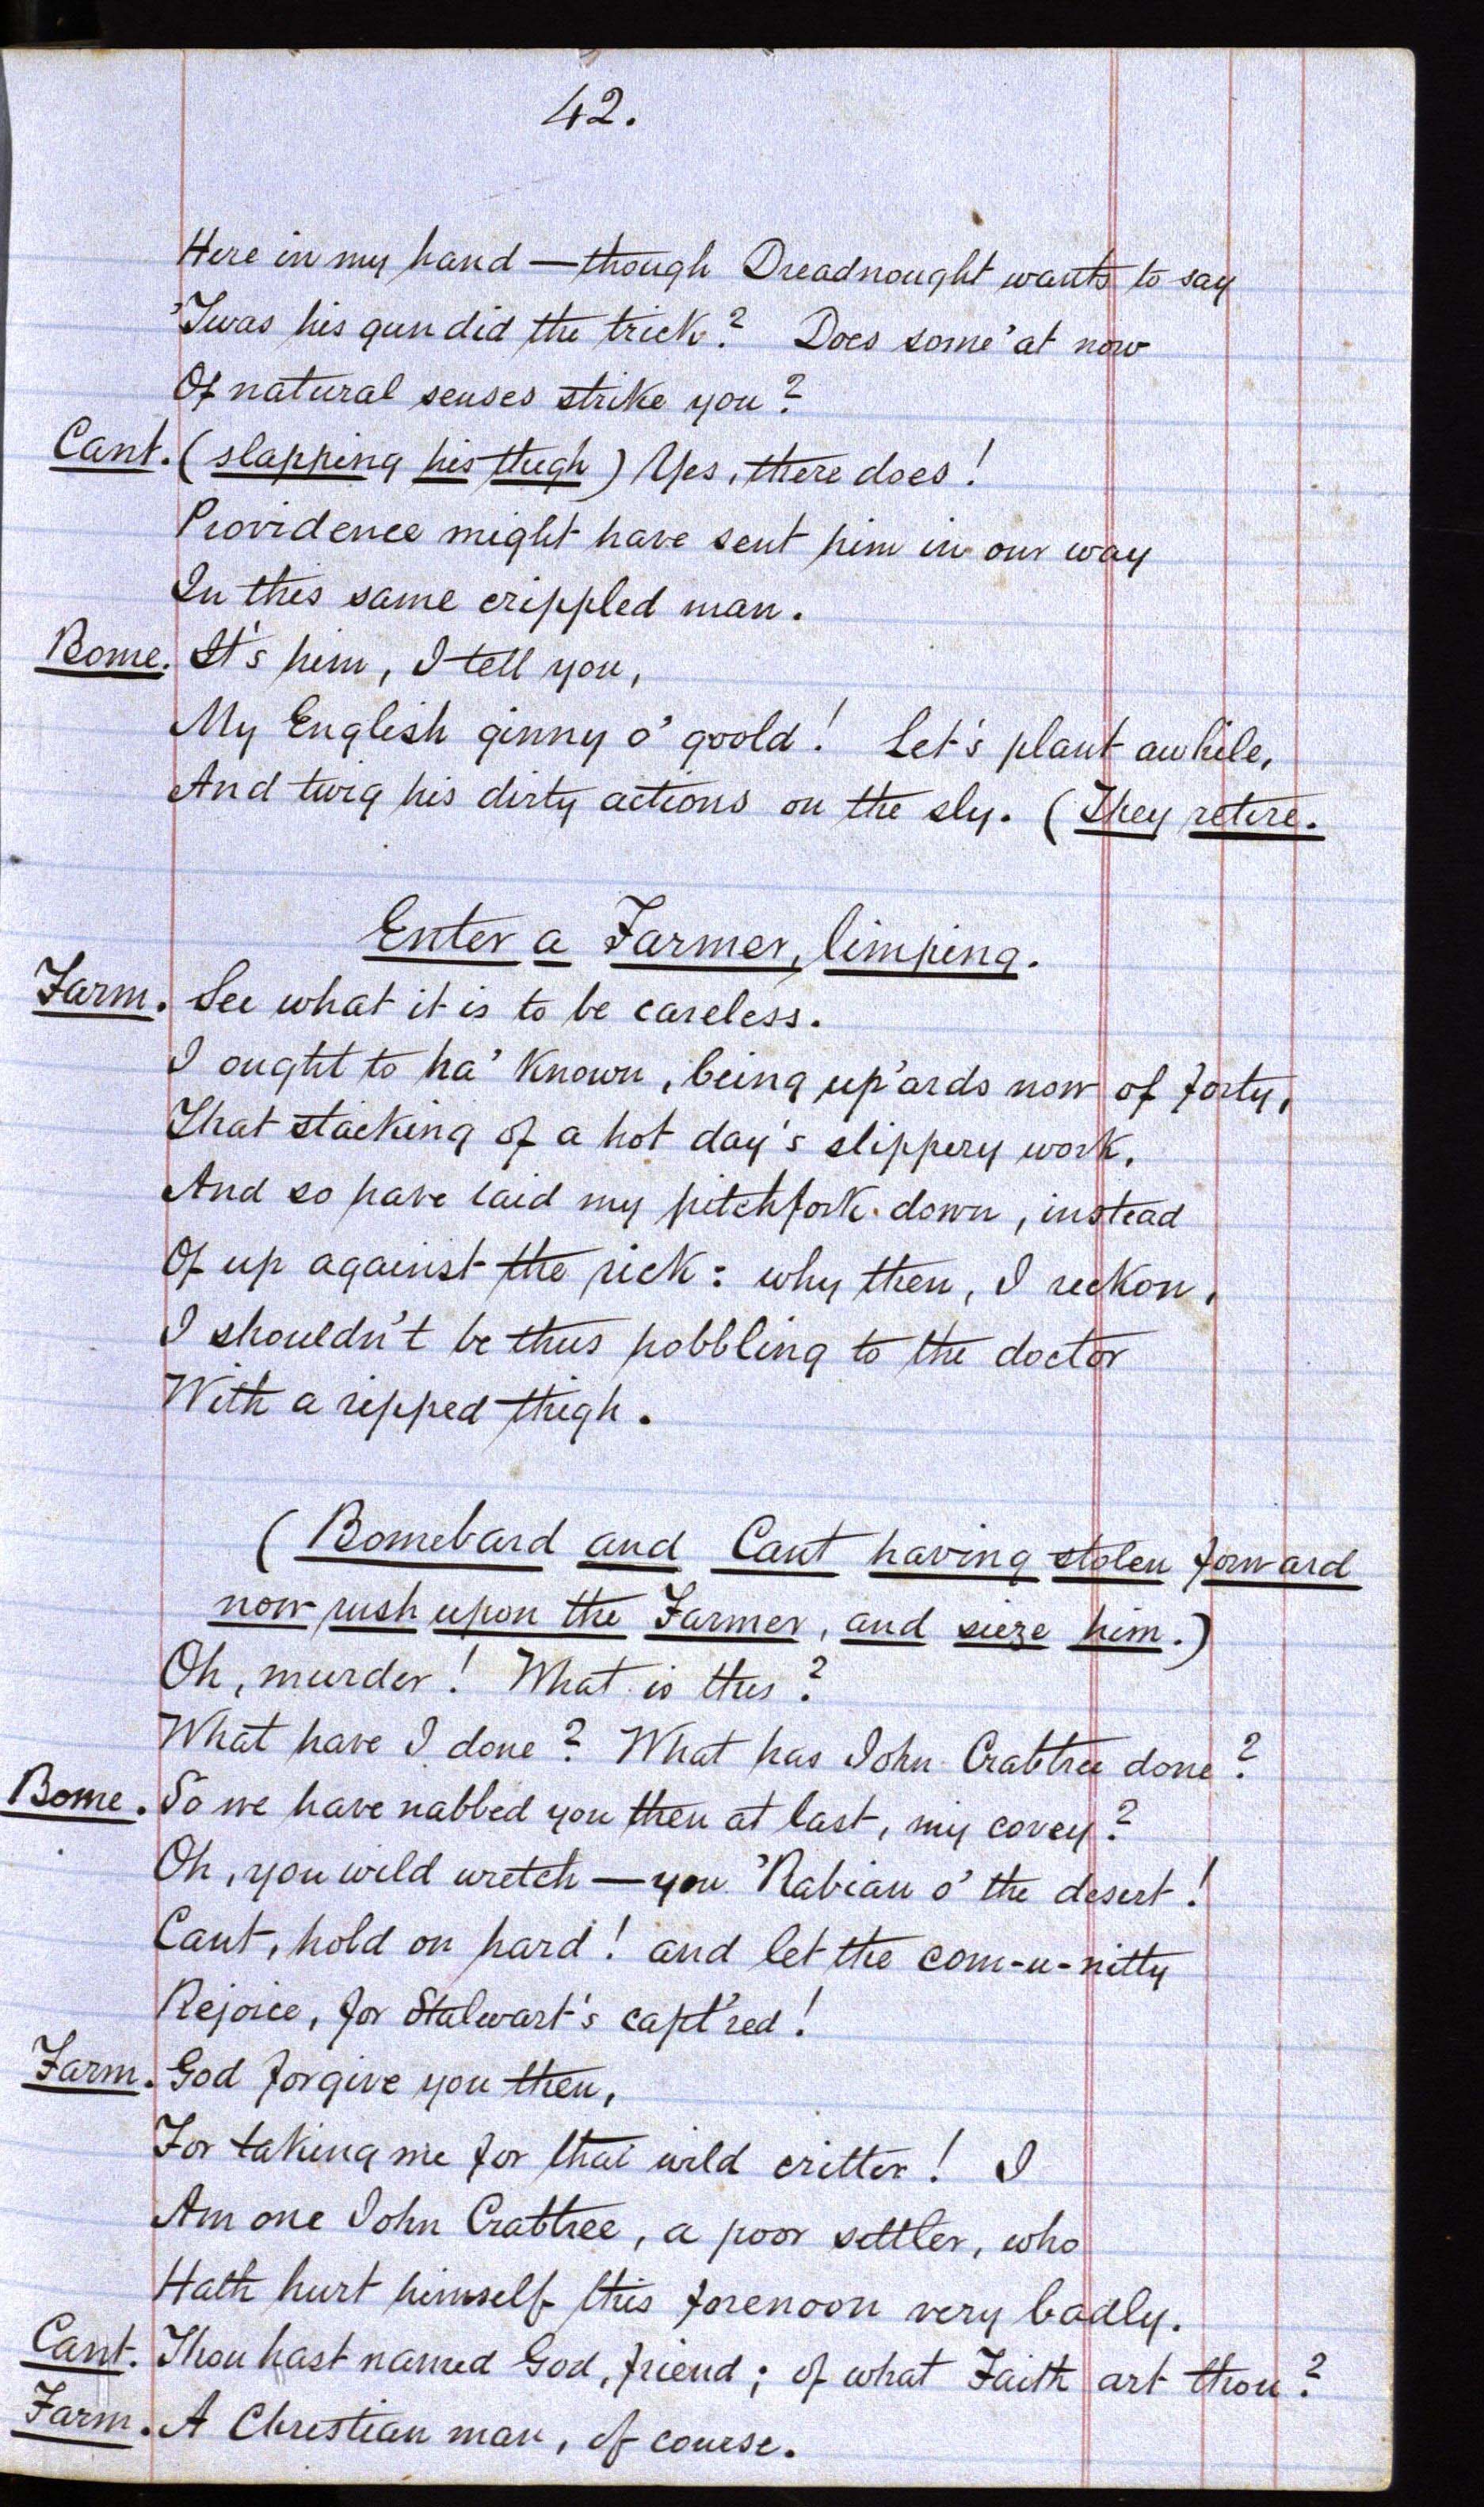 42.
Here in my hand — though Dreadnought wants to say
'Twas his gun did the trick? Does some'at now
Of natural senses strike you?
Cant. (slapping his thigh) Yes, there does!
Providence might have sent him in our way
In this same crippled man.
Bome. It's him, I tell you,
My English ginny o' goold! Let's plant awhile,
And twig his dirty actions on the sly. (They retire.
Enter a Farmer, limping.
Farm. See what it is to be careless.
I ought to ha' known, being up'ards now of forty,
That stacking of a hot day's slippery work,
And so have laid my pitchfork down, instead
Of up against the rick: why then, I reckon,
I shouldn't be thus hobbling to the doctor
With a ripped thigh.
(Bomebard and Cant having stolen forward
now rush upon the Farmer, and sieze him.)
Oh, murder! What is this?
What have I done? What has John Crabtree done?
Bome. So we have nabbed you then at last, my covey?
Oh, you wild wretch — you 'Rabian o' the desert!
Cant, hold on hard! and let the com-u-nitty
Rejoice, for Stalwart's capt'red!
Farm. God forgive you then,
For taking me for that wild critter! I
Am one John Crabtree, a poor settler, who
Hath hurt himself this forenoon very badly.
Cant. Thou hast named God, friend; of what Faith art thou?
Farm. A Christian man, of course.